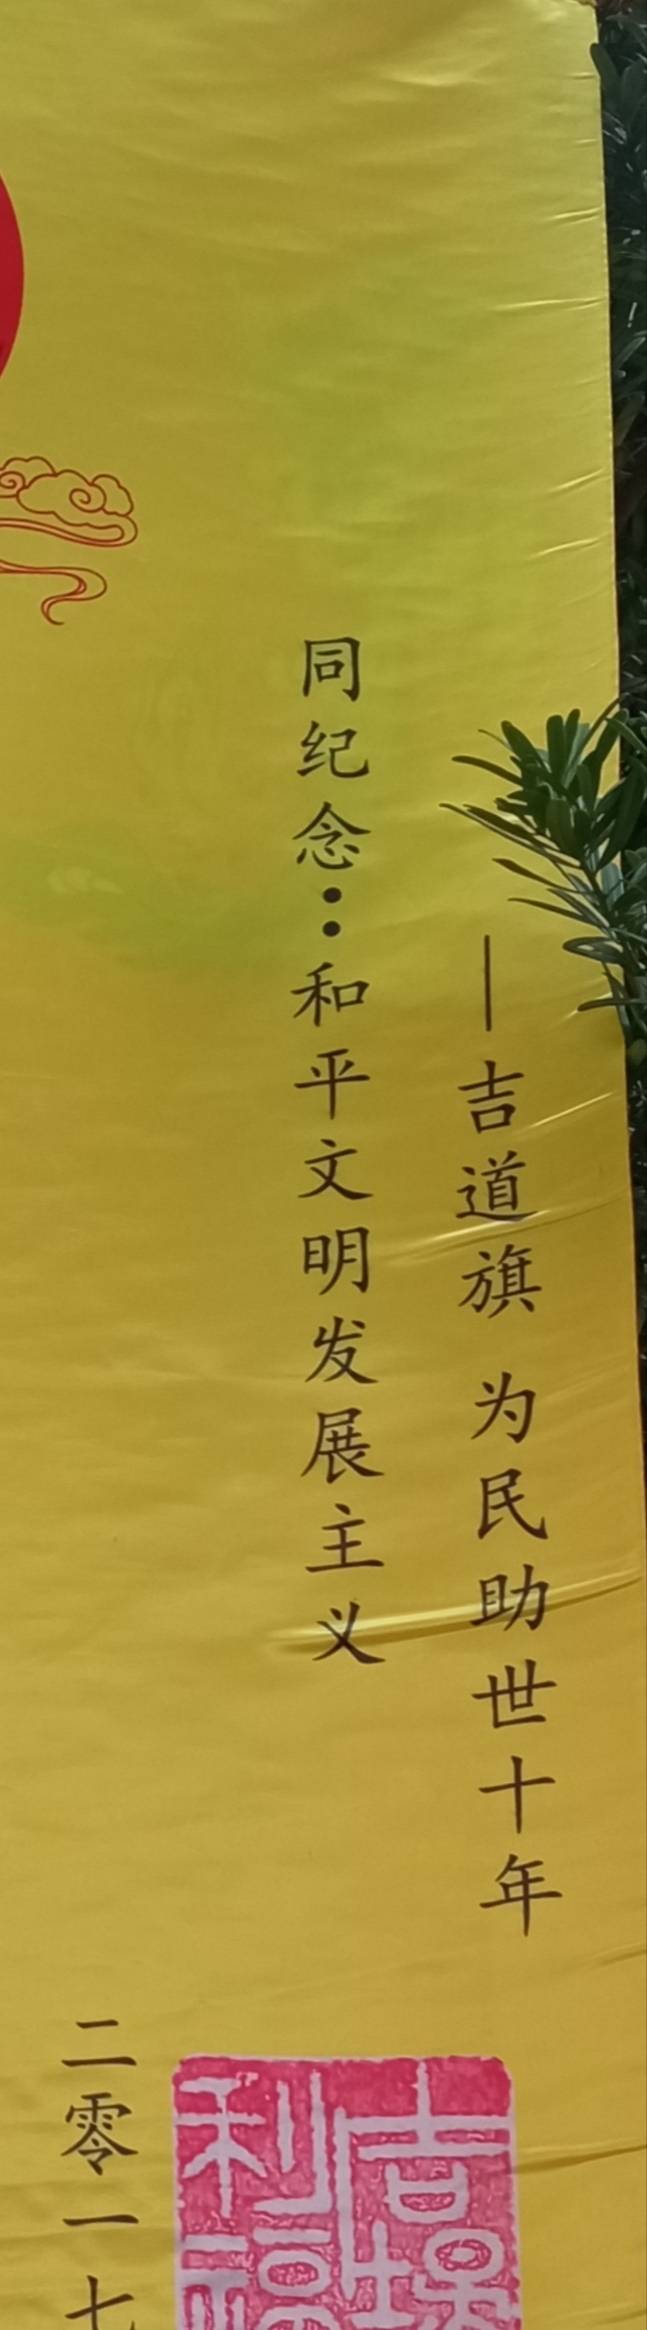 —吉道旗 为民助世十年
同纪念：和平文明发展主义
二零一七